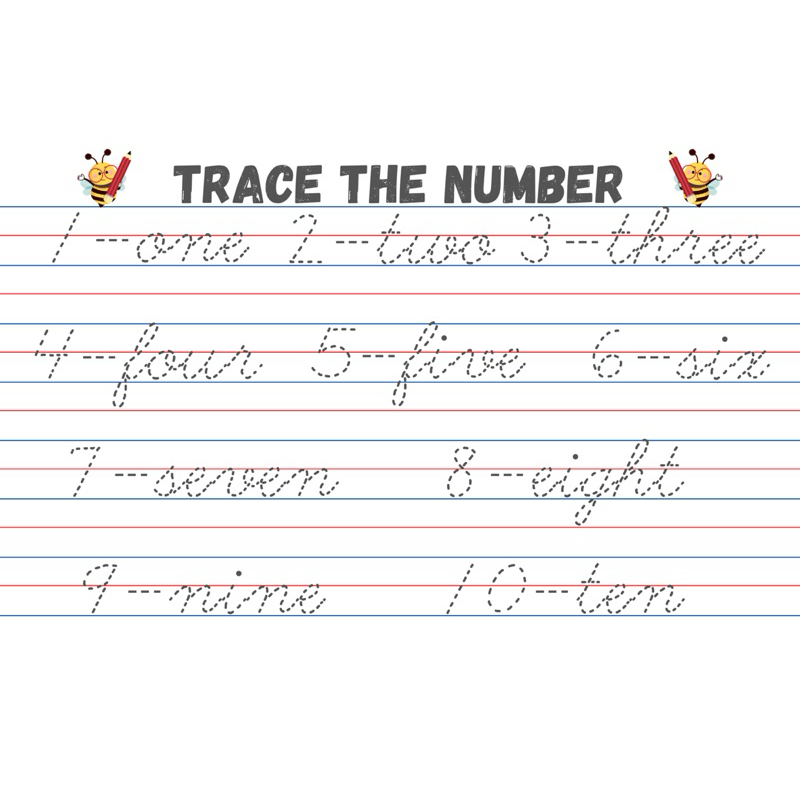 TRACE THE NUMBER
1-one 2-two 3-three
4-four 5-five 6-six
7-seven 8-eight
9-nine 10-ten